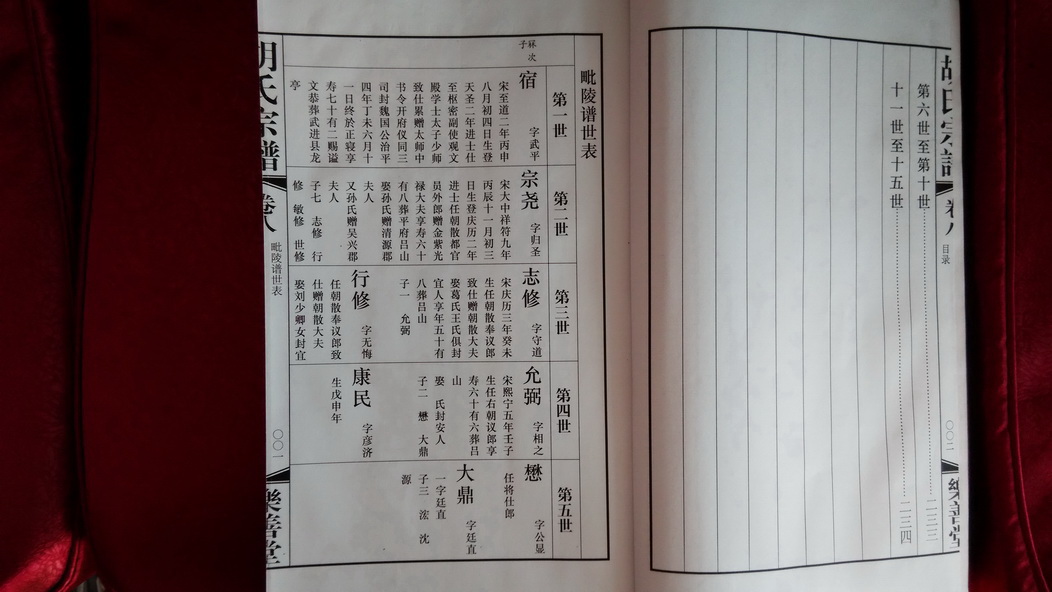 胡氏宗譜 卷八 目录 〇〇二 樂善堂
第六世至第十世……一二三三
十一世至十五世……一二三四
毗陵谱世表
第一世
宿 字武平
宋至道二年丙申
八月初四日生登
天圣二年进士仕
至枢密副使观文
殿学士太子少师
致仕累赠太师中
书令开府仪同三
司封魏国公治平
四年丁未六月十
一日终於正寝享
寿七十有二赐谥
文恭葬武进县龙
亭
第二世
宗尧 字归圣
宋大中祥符九年
丙辰十一月初三
日生登庆历二年
进士任朝散都官
员外郎赠金紫光
禄大夫享寿六十
有八葬平府吕山
娶孙氏赠清源郡
夫人
又孙氏赠吴兴郡
夫人
子七 志修 行
修 敏修 世修
第三世
志修 字守道
宋庆历三年癸未
生任朝散奉议郎
致仕赠朝散大夫
娶葛氏王氏俱封
宜人享年五十有
八葬吕山
子一 允弼
行修 字无悔
任朝散奉议郎致
仕赠朝散大夫
娶刘少卿女封宜
第四世
允弼 字相之
宋熙宁五年壬子
生任右朝议郎享
寿六十有六葬吕
山
娶 氏封安人
子二 懋 大鼎
康民 字彦济
生戊申年
第五世
懋 字公显
任将仕郎
大鼎 字廷直
一字廷直
子三 浤 沈
源
胡氏宗譜 卷八 毗陵谱世表 〇〇一 樂善堂